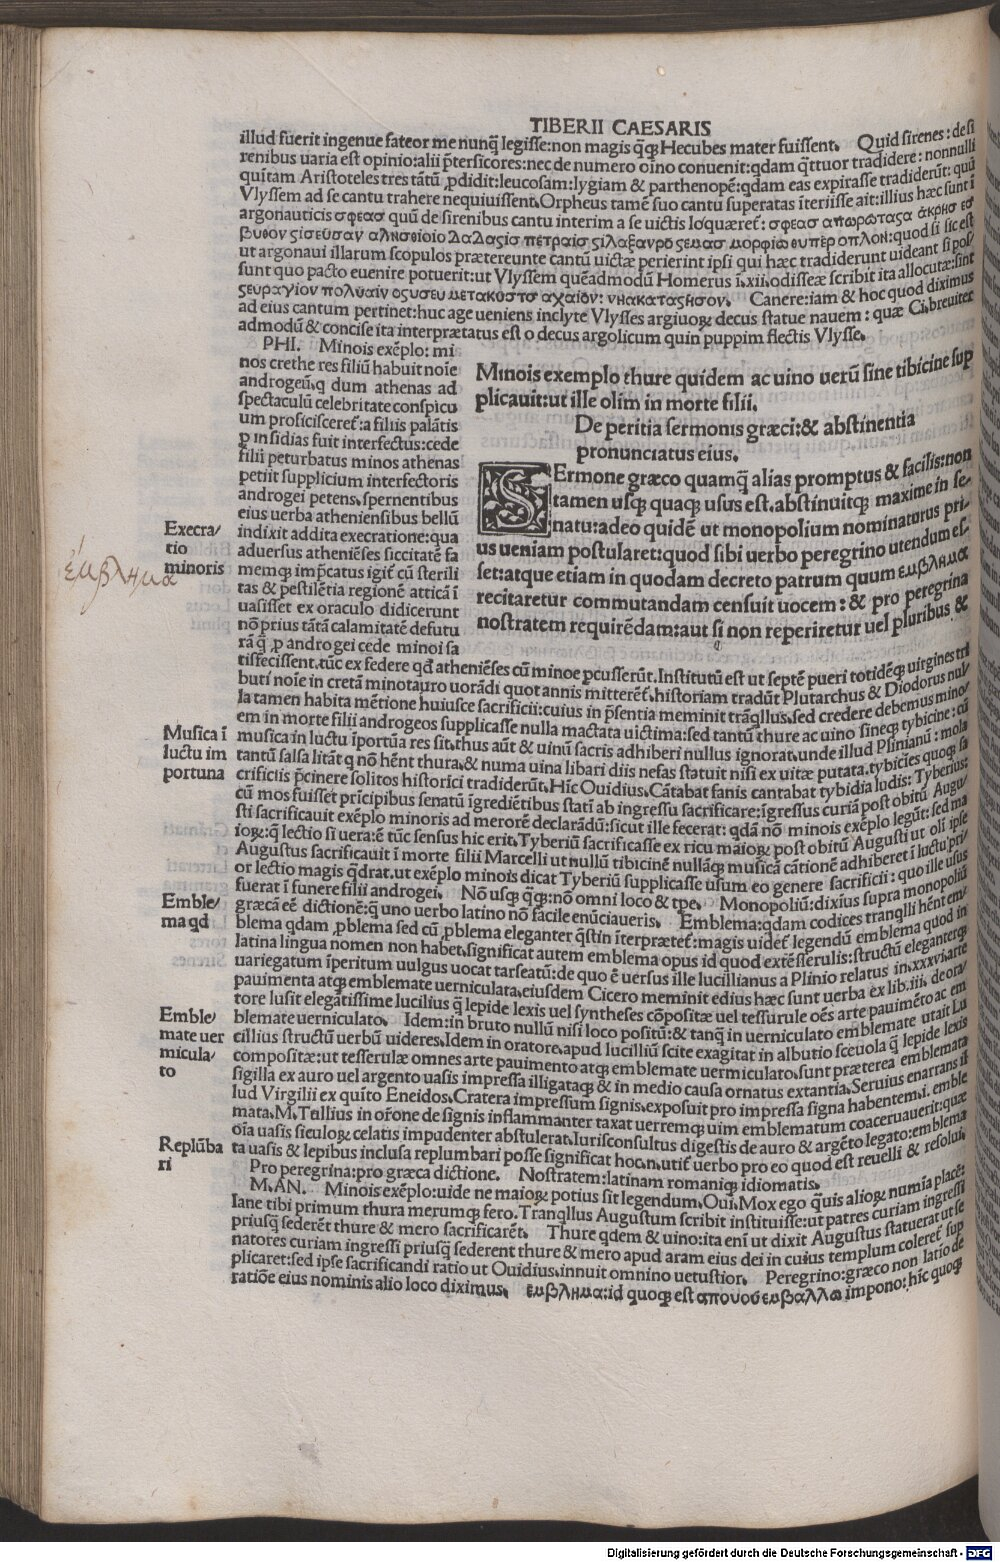 TIBERII CAESARIS
illud fuerit ingenue fateor me nunq̃ legisse:non magis q̃q; Hecubes mater fuissent. Quid sirenes: de si
renibus uaria est opinio:alii p̃tersicores:nec de numero oĩno conuenit:qdam q̃ttuor tradidere: nonnulli
quitam Aristoteles tres tãtũ ꝓdidit:leucosãm:lygiam & parthenopẽ:qdam eas expirasse tradiderũt: quũ
Vlyssem ad se cantu trahere nequiuissent.Orpheus tamẽ suo cantu superatas ĩteriisse ait:illius hæc sunt ĩ
argonauticis σφεασ quũ de sirenibus cantu interim a se uictis loquæret̃: σφεασ
ut argonaui illarum scopulos prætereunte cantũ uictæ perierint ipsi qui hæc tradiderunt uideant si pos/
sunt quo pacto euenire potuerit:ut Vlyssem quẽadmodũ Homerus ĩ.xii.odisseæ scribit ita allocutæ:sint
Canere:iam & hoc quod diximus
ad eius cantum pertinet:huc age ueniens inclyte Vlysses argiuoꝝ decus statue nauem : quæ Ci.breuiter
admodũ & concise ita interprætatus est o decus argolicum quin puppim flectis Vlysse.
PHI. Minois exẽplo: mi
nos crethe res filiũ habuit noĩe
androgeũ.q dum athenas ad
spectaculũ celebritate conspicu
um proficisceret̃:a filiis palãtis
ꝑ insidias fuit interfectus:cede
filii peturbatus minos athenas
petiit supplicium interfectoris
androgei petens.spernentibus
eius uerba atheniensibus bellũ
indixit addita execratione:qua
aduersus atheniẽses siccitatẽ fa
memq; imp̃catus igit̃ cũ sterili
tas & pestilẽtia regionẽ atticã ĩ
uasisset ex oraculo didicerunt
nõ prius tãtã calamitatẽ defutu
rã q̃ ꝓ androgei cede minoi sa
Minois exemplo thure quidem ac uino uerũ sine tibicine sup
plicauit:ut ille olim in morte filii.
De peritia sermonis græci:& abstinentia
pronunciatus eius.
SErmone græco quamq̃ alias promptus & facilis:non
tamen usq; quaq; usus est.abstinuitq; maxime in se/
natu:adeo quidẽ ut monopolium nominaturus pri/
us ueniam postularet:quod sibi uerbo peregrino utendum es/
set:atque etiam in quodam decreto patrum quum εμβλημα
recitaretur commutandam censuit uocem : & pro peregrina
nostratem requirẽdam:aut si non reperiretur uel pluribus &
Execra/
tio
minoris
ἔμβλημα
tisfecissent.tũc ex federe qd̃ atheniẽses cũ minoe pcusserũt.Institutũ est ut septẽ pueri totidẽq; uirgines tri
buti noĩe in cretã minotauro uorãdi quot annis mitterẽt̃.historiam tradũt Plutarchus & Diodorus nul/
la tamen habita mẽtione huiusce sacrificii:cuius in p̃sentia meminit trãqllus.sed credere debemus mino/
em in morte filii androgeos supplicasse nulla mactata uictima:sed tantũ thure ac uino sineq; tybicine : cũ
musica in luctu ĩportũa res sit.thus aũt & uinũ sacris adhiberi nullus ignorat.unde illud Plinianũ : mola
tantũ salsa litãt q nõ hẽnt thura.& numa uina libari diis nefas statuit nisi ex uitæ putata.tybicĩes quoq; sa
crificiis p̃cinere solitos historici tradiderũt.Hĩc Ouidius.Cãtabat fanis cantabat tybidia ludis: Tyberius:
cũ mos fuisset prĩcipibus senatũ ĩgrediẽtibus statĩ ab ingressu sacrificare:ĩgressus curiã post obitũ Augu/
sti sacrificauit exẽplo minoris ad merorẽ declarãdũ:sicut ille fecerat: qdã nõ minois exẽplo legũt: sed ma
ioꝝ:q̃ lectio si uera:ẽ tũc sensus hic erit.Tyberiũ sacrificasse ex ricu maioꝝ post obitũ Augusti ut oli ipse
Augustus sacrificauit ĩ morte filii Marcelli ut nullũ tibicinẽ nullãq; musicã cãtionẽ adhiberet ĩ luctu:pri/
or lectio magis q̃drat.ut exẽplo minois dicat Tyberiũ supplicasse usum eo genere sacrificii : quo ille usus
fuerat ĩ funere filii androgei. Nõ usq; q̃q;:nõ omni loco & tp̃e. Monopoliũ:dixĩus supra monopoliũ
græcã eẽ dictionẽ:q̃ uno uerbo latino nõ facile enũciaueris. Emblema:qdam codices tranqlli hẽnt em/
blema qdam ꝓblema sed cũ ꝓblema eleganter q̃stin ĩterprætet̃:magis uidet̃ legendũ emblema quod in
latina lingua nomen non habet.significat autem emblema opus id quod extẽsserulis:structũ eleganterq;
uariegatum ĩperitum uulgus uocat tarseatũ:de quo ẽ uersus ille lucillianus a Plinio relatus in.xxxvi.arte
pauimenta atq; emblemate uerniculata.eiusdem Cicero meminit edius hæc sunt uerba ex lib.iii. de ora/
tore lusit elegãtissime lucilius q̃ lepide lexis uel syntheses cõpositæ uel tessurule oẽs arte pauimẽto ac em
blemate uerniculato. Idem:in bruto nullũ nisi loco positũ:& tanq̃ in uerniculato emblemate utait Lu
cillius structũ uerbũ uideres.Idem in oratore.apud lucilliũ scite exagitat in albutio sceuola q̃ lepide lexis
compositæ:ut tesserulæ omnes arte pauimento atq; emblemate uermiculato.sunt præterea emblemata
sigilla ex auro uel argento uasis impressa illigataq; & in medio causa ornatus extantia.Seruius enarrans il
lud Virgilii ex quĩto Eneidos.Cratera impressum signis.exposuit pro impressa signa habentem.i. emble
mata.M.Tullius in or̃one de signis inflammanter taxat uerremq; uim emblematum coaceruauerit:quæ
oĩa uasis siculoꝝ celatis impudenter abstulerat.Iurisconsultus digestis de auro & argẽto legato:emblema
ta uasis & lepibus inclusa replumbari posse significat hoc.n.utit̃ uerbo pro eo quod est reuelli & resolui.
Pro peregrina:pro græca dictione. Nostratem:latinam romaniq; idiomatis.
M.AN. Minois exẽplo:uide ne maioꝝ potius sit legendum.Oui.Mox ego q̃uis alioꝝ numĩa placẽ:
Iane tibi primum thura merumq; fero.Tranqllus Augustum scribit instituisse:ut patres curiam ingressi
priusq̃ sederẽt thure & mero sacrificarẽt. Thure qdem & uino:ita enĩ ut dixit Augustus statuerat ut se
natores curiam ingressi priusq̃ sederent thure & mero apud aram eius dei in cuius templum coleret̃ sup
plicaret:sed ipse sacrificandi ratio ut Ouidius.innuit omnino uetustior. Peregrino:græco non latio de
ratiõe eius nominis alio loco diximus. εμβλημα:id quoq; est απουοσ εμβαλλω impono: hĩc quoq;
Musica ĩ
luctu im
portuna
Emble/
ma qd
Emble/
mate uer
micula/
to
Replũba
ri
Digitalisierung gefördert durch die Deutsche Forschungsgemeinschaft - DFG